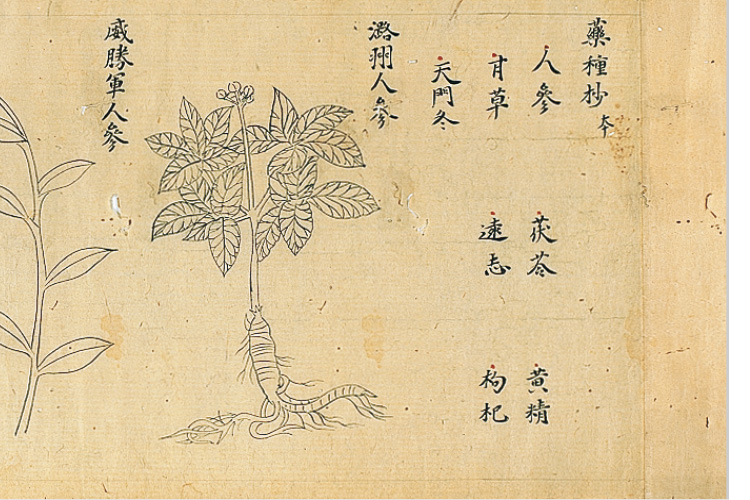 藥種抄 本
人參 茯苓 黄精
甘草 遠志 枸杞
天門冬
潞州人參
威勝軍人參